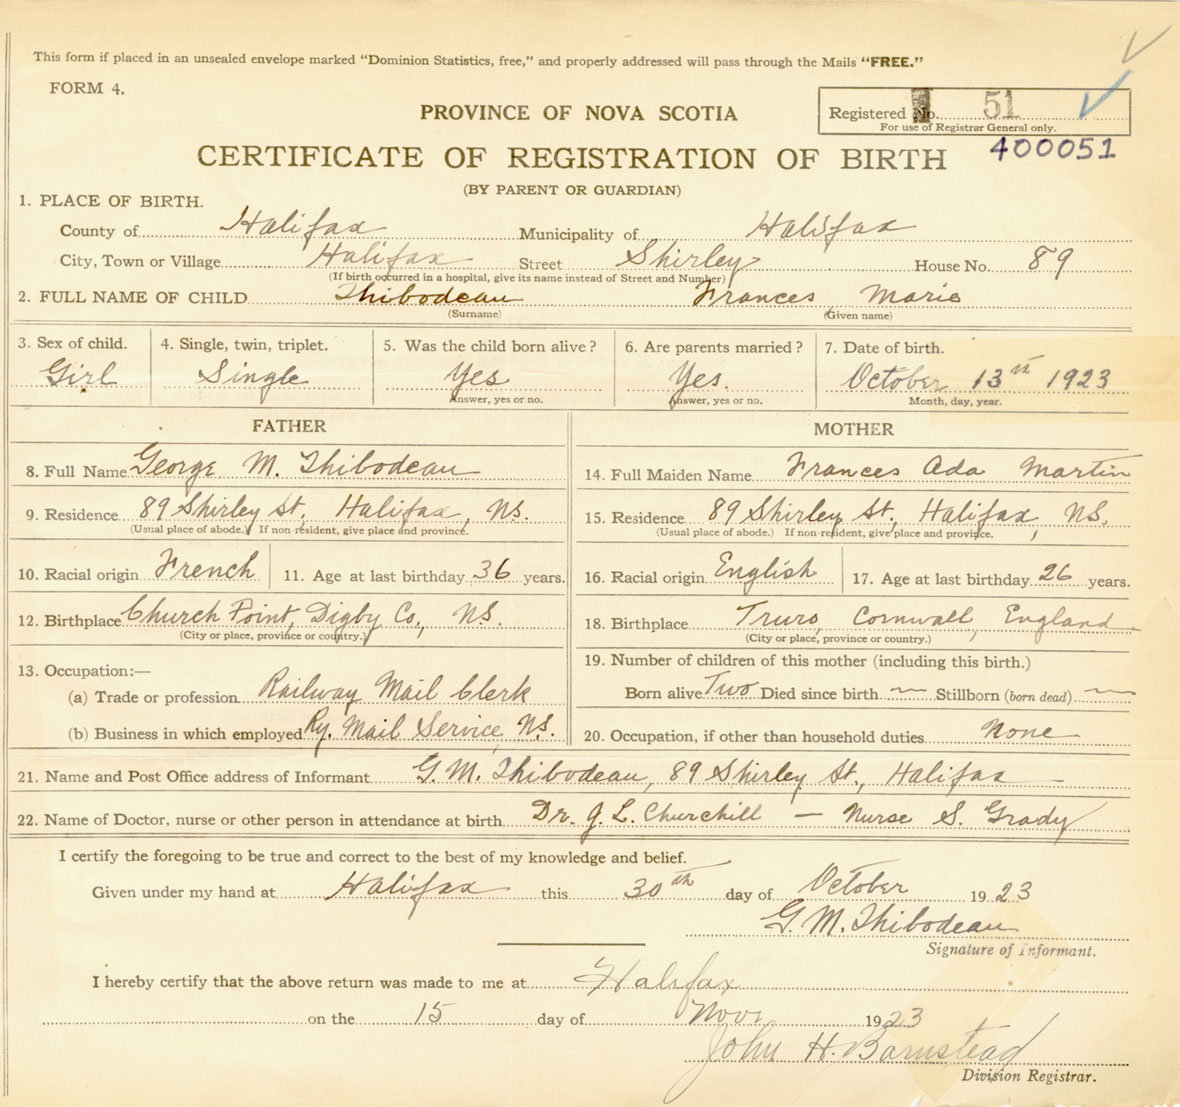 This form if placed in an unsealed envelope marked "Dominion Statistics, free," and properly addressed will pass through the Mails "FREE."
FORM 4.
PROVINCE OF NOVA SCOTIA
Registered No. 51
For use of Registrar General only.
CERTIFICATE OF REGISTRATION OF BIRTH 400051
(BY PARENT OR GUARDIAN)
1. PLACE OF BIRTH.
County of Halifax Municipality of Halifax
City, Town or Village Halifax Street Shirley House No. 89
(If birth occurred in a hospital, give its name instead of Street and Number)
2. FULL NAME OF CHILD Thibodeau Frances Marie
(Surname) (Given name)
3. Sex of child. 4. Single, twin, triplet. 5. Was the child born alive? 6. Are parents married? 7. Date of birth.
Girl Single Yes Yes. October 13th 1923
Answer, yes or no. Answer, yes or no. Month, day, year.
FATHER
8. Full Name George M. Thibodeau
9. Residence 89 Shirley St, Halifax, N.S.
(Usual place of abode.) If non-resident, give place and province.
10. Racial origin French 11. Age at last birthday 36 years.
12. Birthplace Church Point, Digby Co., N.S.
(City or place, province or country.)
13. Occupation:—
(a) Trade or profession Railway Mail Clerk
(b) Business in which employed Ry. Mail Service, N.S.
MOTHER
14. Full Maiden Name Frances Ada Martin
15. Residence 89 Shirley St, Halifax, N.S.
(Usual place of abode.) If non-resident, give place and province.
16. Racial origin English 17. Age at last birthday 26 years.
18. Birthplace Truro, Cornwall, England
(City or place, province or country.)
19. Number of children of this mother (including this birth.)
Born alive Two Died since birth — Stillborn (born dead) —
20. Occupation, if other than household duties None
21. Name and Post Office address of Informant G. M. Thibodeau, 89 Shirley St., Halifax
22. Name of Doctor, nurse or other person in attendance at birth Dr. G. L. Churchill — Nurse S. Grady
I certify the foregoing to be true and correct to the best of my knowledge and belief.
Given under my hand at Halifax this 30th day of October 1923
G. M. Thibodeau
Signature of Informant.
I hereby certify that the above return was made to me at Halifax
on the 15 day of Nov. 1923
John H. Barnstead
Division Registrar.